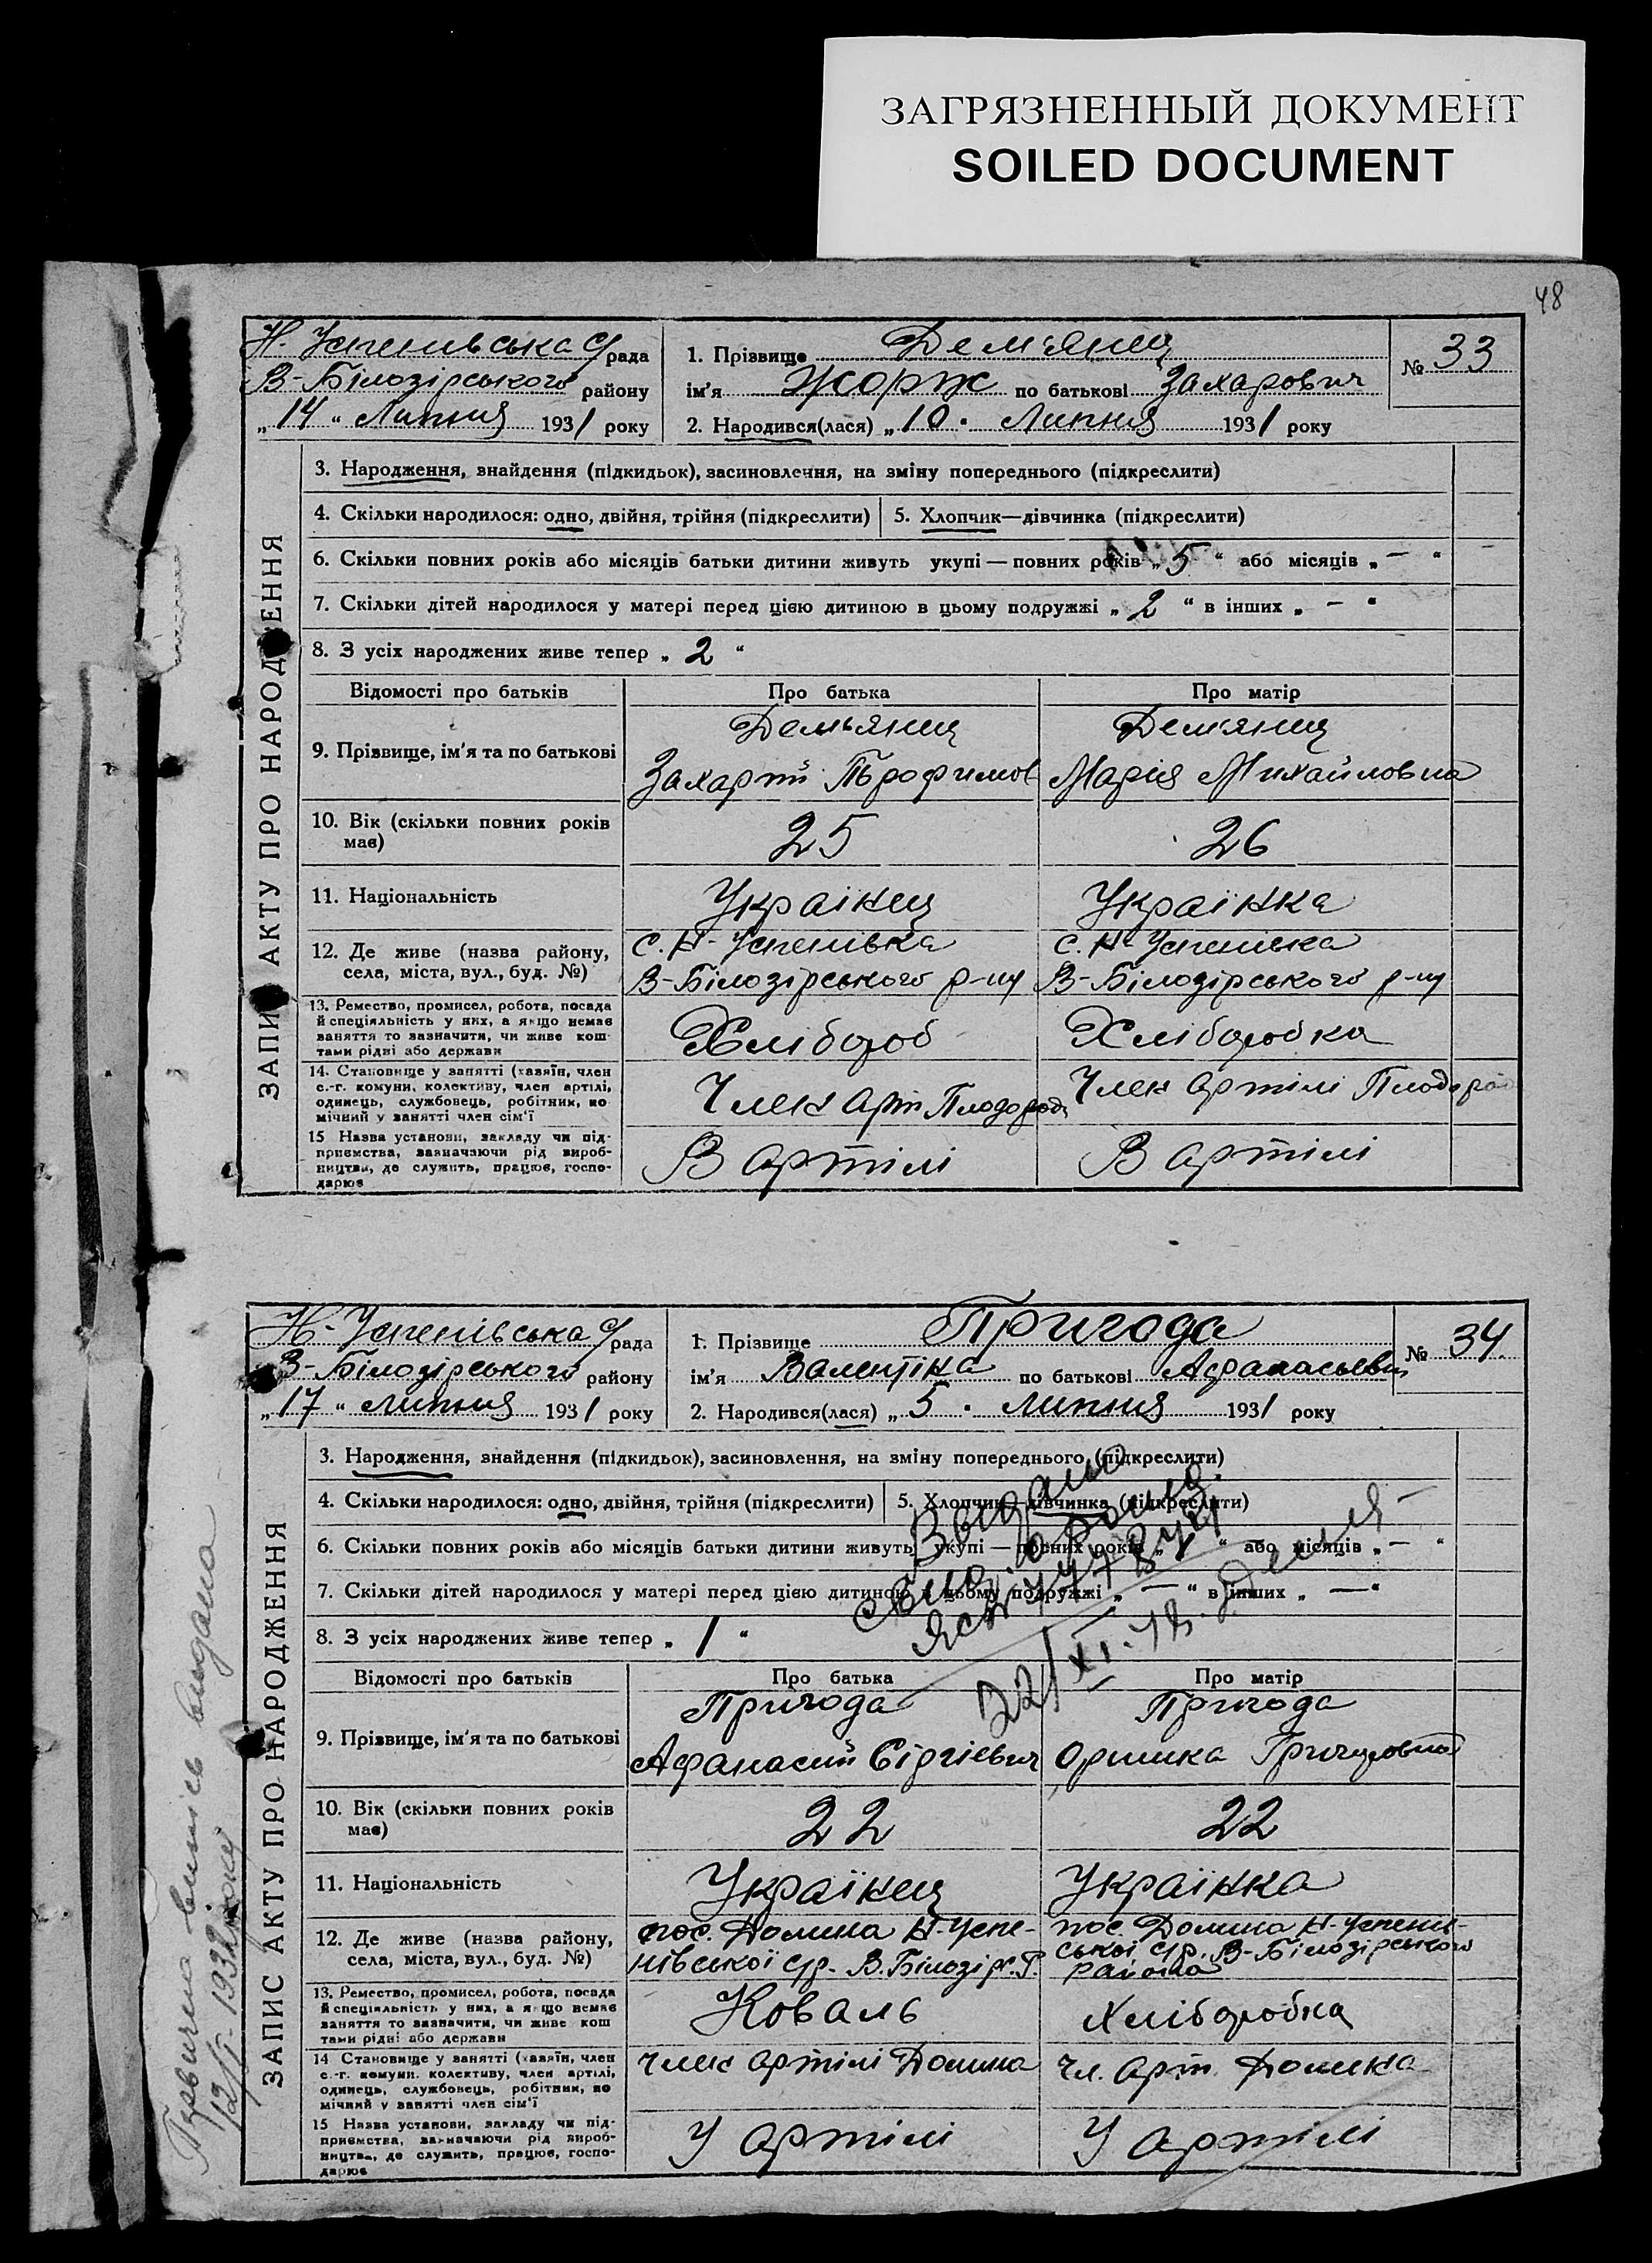 ЗАГРЯЗНЕННЫЙ ДОКУМЕНТ
SOILED DOCUMENT
48
Н. Успенівська с/рада
В-Білозірського району
„14“ Липня 1931 року
1. Прізвище Дем'янец
ім'я Жорж по батькові Захарович
№ 33
2. Народився(лася) „10. Липня 1931 року
ЗАПИС АКТУ ПРО НАРОДЖЕННЯ
3. Народження, знайдення (підкидьок), засиновлення, на зміну попереднього (підкреслити)
4. Скільки народилося: одно, двійня, трійня (підкреслити) 5. Хлопчик—дівчинка (підкреслити)
6. Скільки повних років або місяців батьки дитини живуть укупі — повних років „5“ або місяців „—“
7. Скільки дітей народилося у матері перед цією дитиною в цьому подружжі „2“ в інших „—“
8. З усіх народжених живе тепер „2“
Відомості про батьків Про батька Про матір
9. Прізвище, ім'я та по батькові
Демьянец
Захарій Трофимов
Дем'янец
Марія Михайловна
10. Вік (скільки повних років має)
25 26
11. Національність
Украінец Українка
12. Де живе (назва району, села, міста, вул., буд. №)
с. Н-Успенівка
В-Білозірського р-ну
с. Н-Успенівка
В-Білозірського р-ну
13. Ремество, промисел, робота, посада
й спеціяльність у них, а якщо немає
заняття то зазначити, чи живе кош-
тами рідні або держави
Хлібороб Хліборобка
14. Становище у занятті (хазяїн, член
с.-г. комуни, колективу, член артілі,
одинець, службовець, робітник, по
мічний у занятті член сім'ї
Член арт Плодород Член артілі Плодород
15 Назва установи, закладу чи під-
приємства, зазначаючи рід вироб-
ництва, де служить, працює, госпо-
дарює
В артілі В артілі
Н-Успенівська с/рада
В-Білозірського району
„17“ липня 1931 року
1. Прізвище Пригода
ім'я Валентіна по батькові Афанасьевн
№ 34.
2. Народився(лася) „5. липня 1931 року
ЗАПИС АКТУ ПРО НАРОДЖЕННЯ
3. Народження, знайдення (підкидьок), засиновлення, на зміну попереднього (підкреслити)
4. Скільки народилося: одно, двійня, трійня (підкреслити) 5. Хлопчик—дівчинка (підкреслити)
6. Скільки повних років або місяців батьки дитини живуть укупі — повних років „ “ або місяців „—“
7. Скільки дітей народилося у матері перед цією дитиною в цьому подружжі „—“ в інших „—“
8. З усіх народжених живе тепер „1“
Выдано
22/XI
Відомості про батьків Про батька Про матір
9. Прізвище, ім'я та по батькові
Пригода
Афанасий Сіргієвич
Пригода
Оришка Григоровна
10. Вік (скільки повних років має)
22 22
11. Національність
Українец Українка
12. Де живе (назва району, села, міста, вул., буд. №)
пос. Долина Н-Успе-
нівської с/р. В. Білозірс. Р.
пос. Долина Н-Успені-
ської с/р. В-Білозірського
района
13. Ремество, промисел, робота, посада
й спеціяльність у них, а якщо немає
заняття то зазначити, чи живе кош
тами рідні або держави
Коваль Хліборобка
14 Становище у занятті (хазяїн, член
с.-г. комуни, колективу, член артілі,
одинець, службовець, робітник, по
мічний у занятті член сім'ї
член артілі Долина Чл. Арт. Долина
15 Назва установи, закладу чи під-
приємства, зазначаючи рід вироб-
ництва, де служить, працює, госпо-
дарює
У артілі У артілі
Первична випись видана